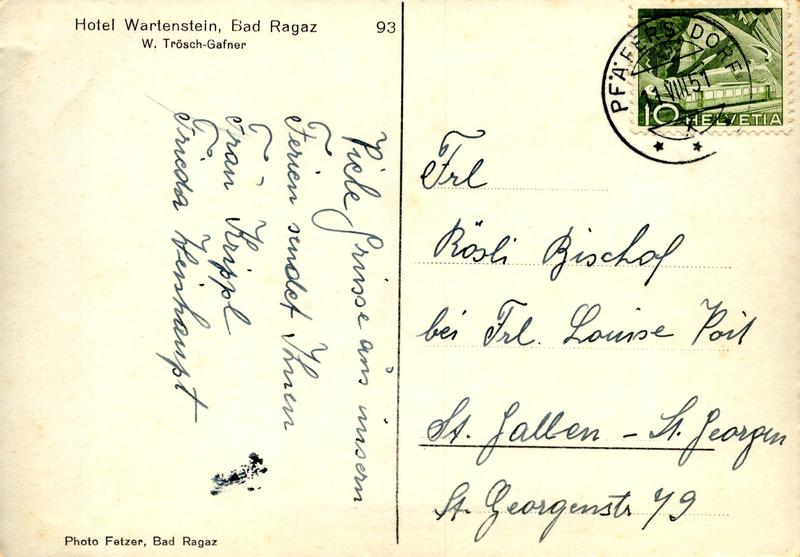 Hotel Wartenstein, Bad Ragaz 93
W. Trösch-Gafner
Viele Grüsse aus unsern
Ferien sendet Ihnen
Frau Krippl
Frieda Weishaupt
Photo Fetzer, Bad Ragaz
PFÄFERS DORF
11 VIII 51
10 HELVETIA
Frl
Rösli Bischof
bei Frl. Louise
St. Gallen - St. Georgen
St. Georgenstr 79